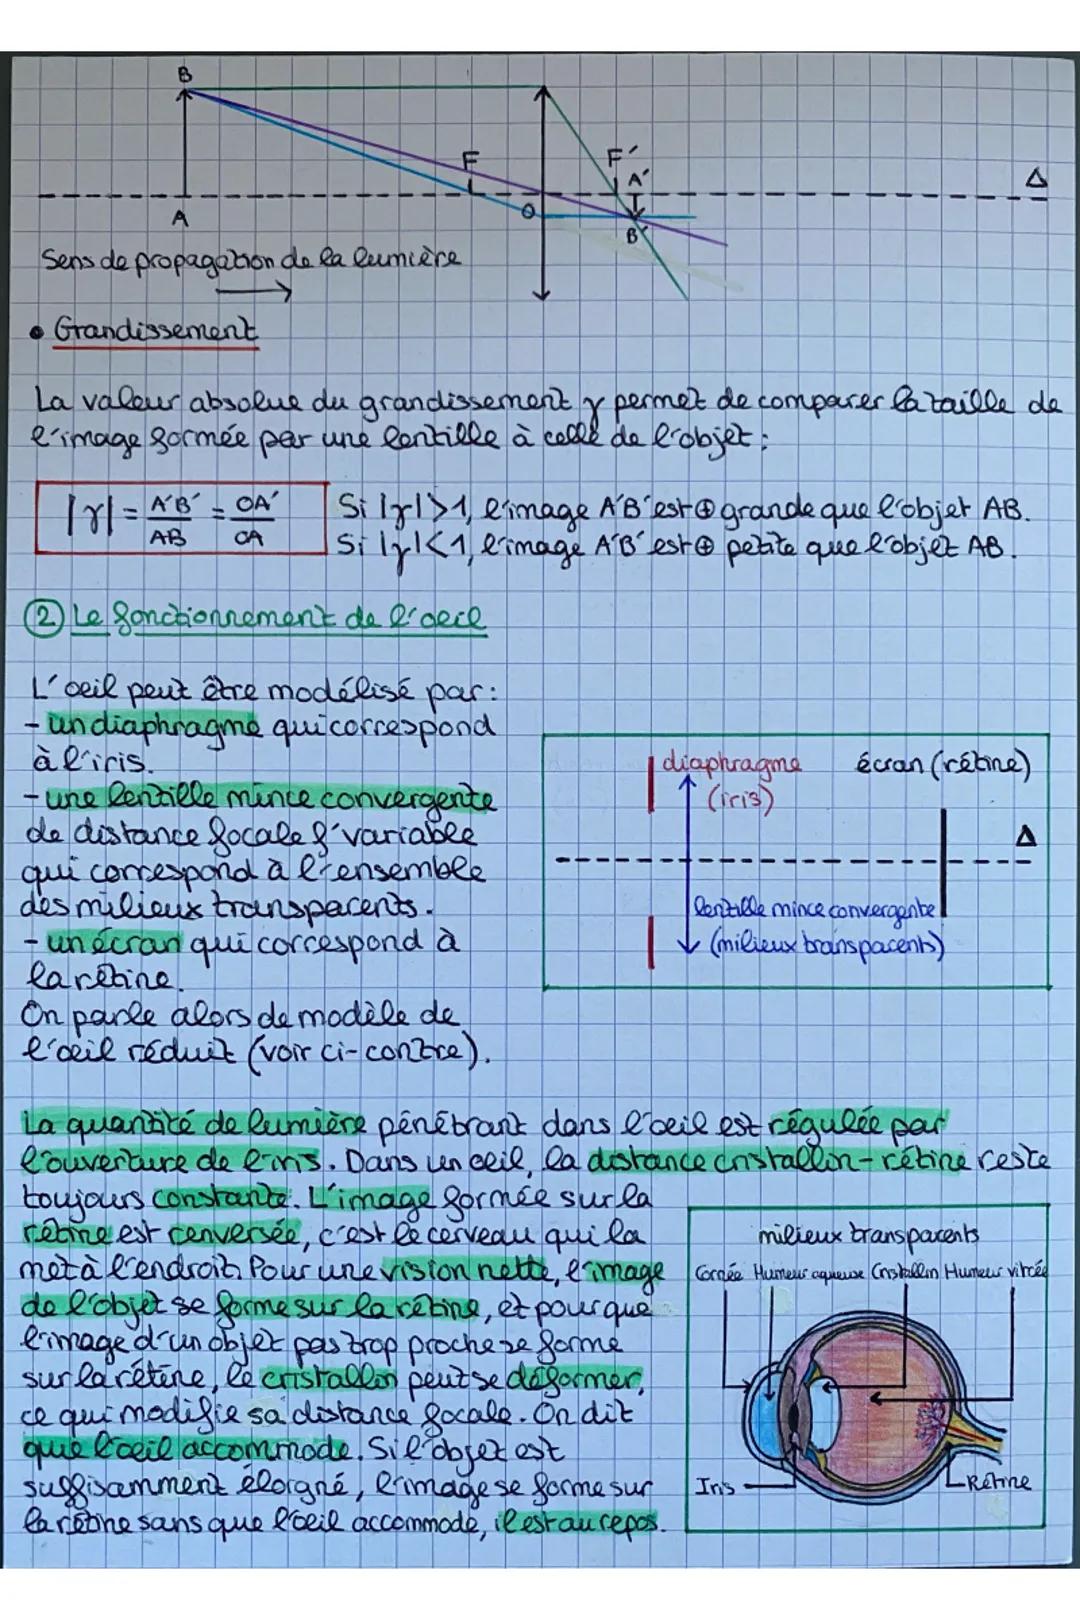 B
F
F′
A′
Δ
A
O
B′
Sens de propagation de la lumière
• Grandissement
La valeur absolue du grandissement γ permet de comparer la taille de
l'image formée par une lentille à celle de l'objet :
|γ| = A′B′/AB = OA′/OA
Si |γ|>1, l'image A′B′ est ⊕ grande que l'objet AB.
Si |γ|<1, l'image A′B′ est ⊕ petite que l'objet AB.
② Le fonctionnement de l'oeil
L'oeil peut être modélisé par :
- un diaphragme qui correspond
à l'iris.
- une lentille mince convergente
de distance focale f′ variable
qui correspond à l'ensemble
des milieux transparents.
- un écran qui correspond à
la rétine.
On parle alors de modèle de
l'oeil réduit (voir ci-contre).
diaphragme
(iris)
écran (rétine)
Δ
lentille mince convergente
(milieux transparents)
La quantité de lumière pénétrant dans l'oeil est régulée par
l'ouverture de l'iris. Dans un oeil, la distance cristallin-rétine reste
toujours constante. L'image formée sur la
rétine est renversée, c'est le cerveau qui la
met à l'endroit. Pour une vision nette, l'image
de l'objet se forme sur la rétine, et pour que
l'image d'un objet pas trop proche se forme
sur la rétine, le cristallin peut se déformer,
ce qui modifie sa distance focale. On dit
que l'oeil accommode. Si l'objet est
suffisamment éloigné, l'image se forme sur
la rétine sans que l'oeil accommode, il est au repos.
milieux transparents
Cornée Humeur aqueuse Cristallin Humeur vitrée
Iris
Rétine